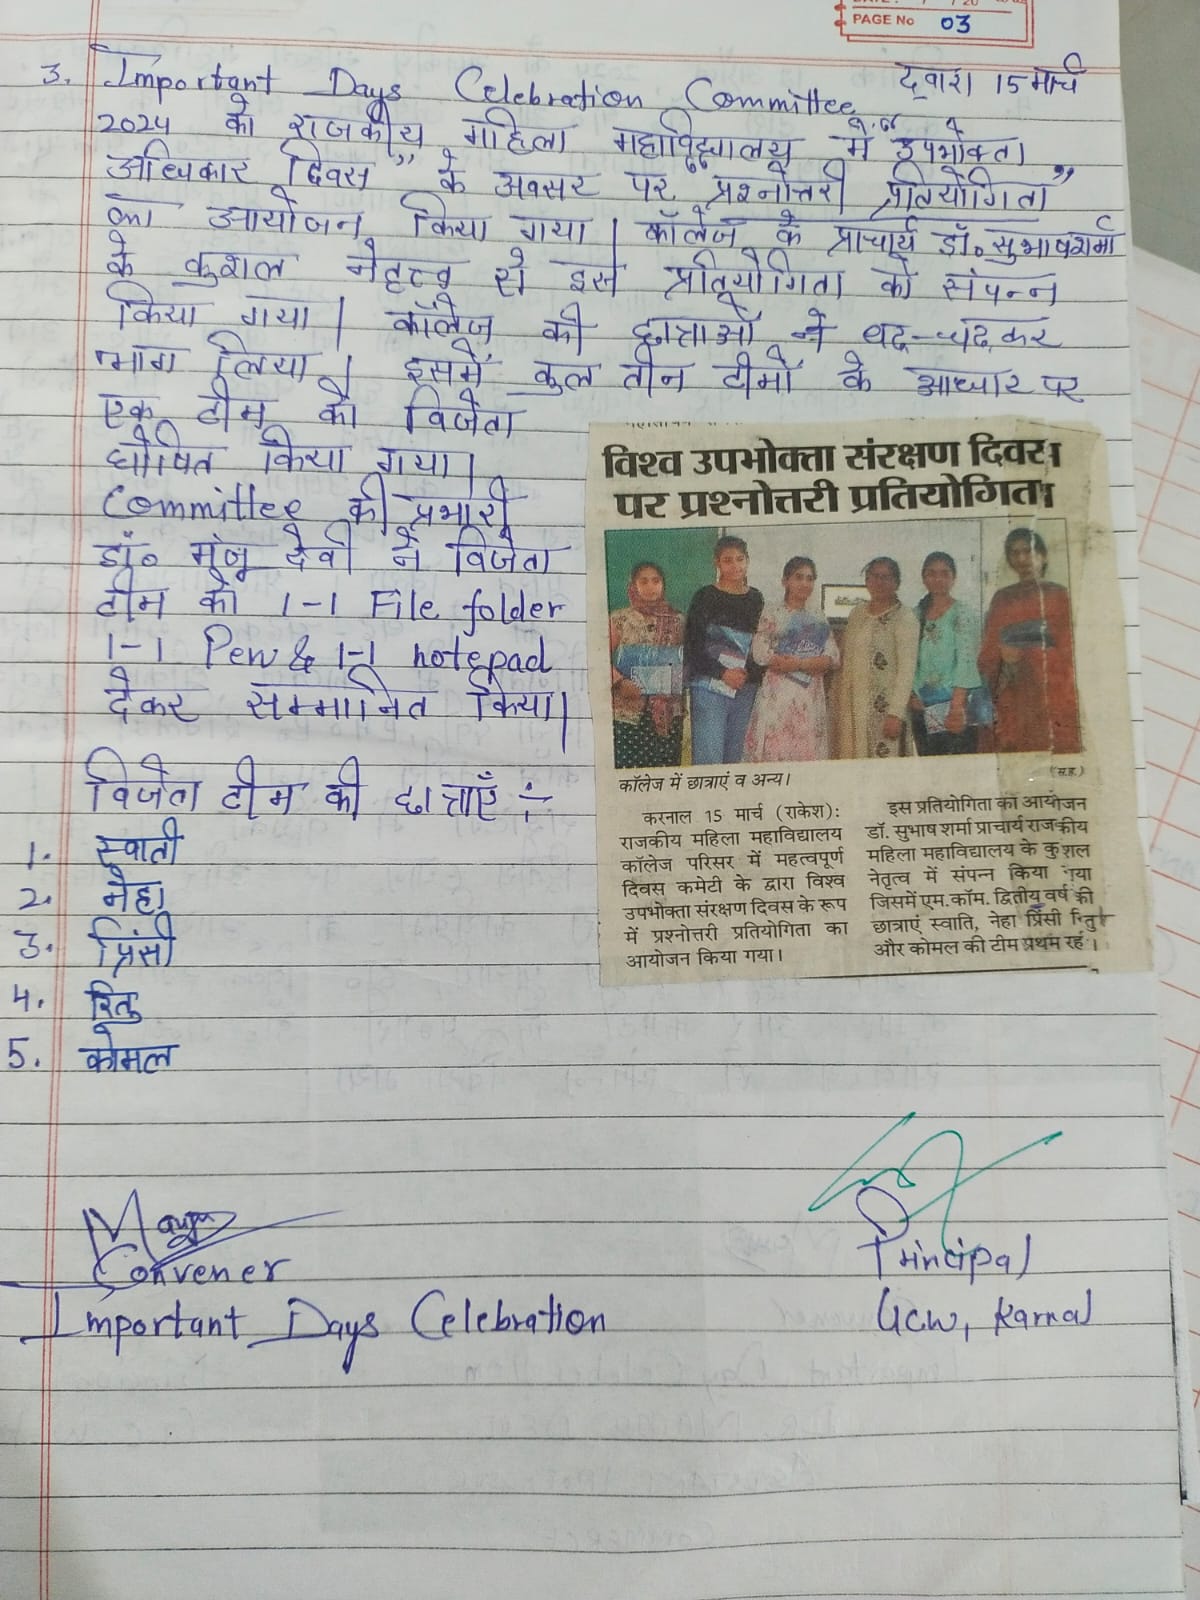 PAGE No 03
3. Important Days Celebration Committee द्वारा 15 मार्च
2024 को राजकीय महिला महाविद्यालय में "उपभोक्ता
अधिकार दिवस" के अवसर पर "प्रश्नोत्तरी प्रतियोगिता"
का आयोजन किया गया। कॉलेज के प्राचार्य डॉ० सुभाष शर्मा
के कुशल नेतृत्व से इस प्रतियोगिता को संपन्न
किया गया। कॉलेज की छात्राओं ने बढ़-चढ़ कर
भाग लिया। इसमें कुल तीन टीमों के आधार पर
एक टीम को विजेता
घोषित किया गया।
Committee की प्रभारी
डॉ० मंजू देवी ने विजेता
टीम को 1-1 File folder
1-1 Pen & 1-1 notepad
देकर सम्मानित किया।
विजेता टीम की छात्राएँ :-
1. स्वाती
2. नेहा
3. प्रिंसी
4. रितु
5. कोमल
विश्व उपभोक्ता संरक्षण दिवस
पर प्रश्नोत्तरी प्रतियोगिता
कॉलेज में छात्राएं व अन्य। (स.ह.)
करनाल 15 मार्च (राकेश):
राजकीय महिला महाविद्यालय
कॉलेज परिसर में महत्वपूर्ण
दिवस कमेटी के द्वारा विश्व
उपभोक्ता संरक्षण दिवस के रूप
में प्रश्नोत्तरी प्रतियोगिता का
आयोजन किया गया।
इस प्रतियोगिता का आयोजन
डॉ. सुभाष शर्मा प्राचार्य राजकीय
महिला महाविद्यालय के कुशल
नेतृत्व में संपन्न किया गया
जिसमें एम.कॉम. द्वितीय वर्ष की
छात्राएं स्वाति, नेहा प्रिंसी रितु
और कोमल की टीम प्रथम रहं।
Convener
Important Days Celebration
Principal
GCW, Karnal